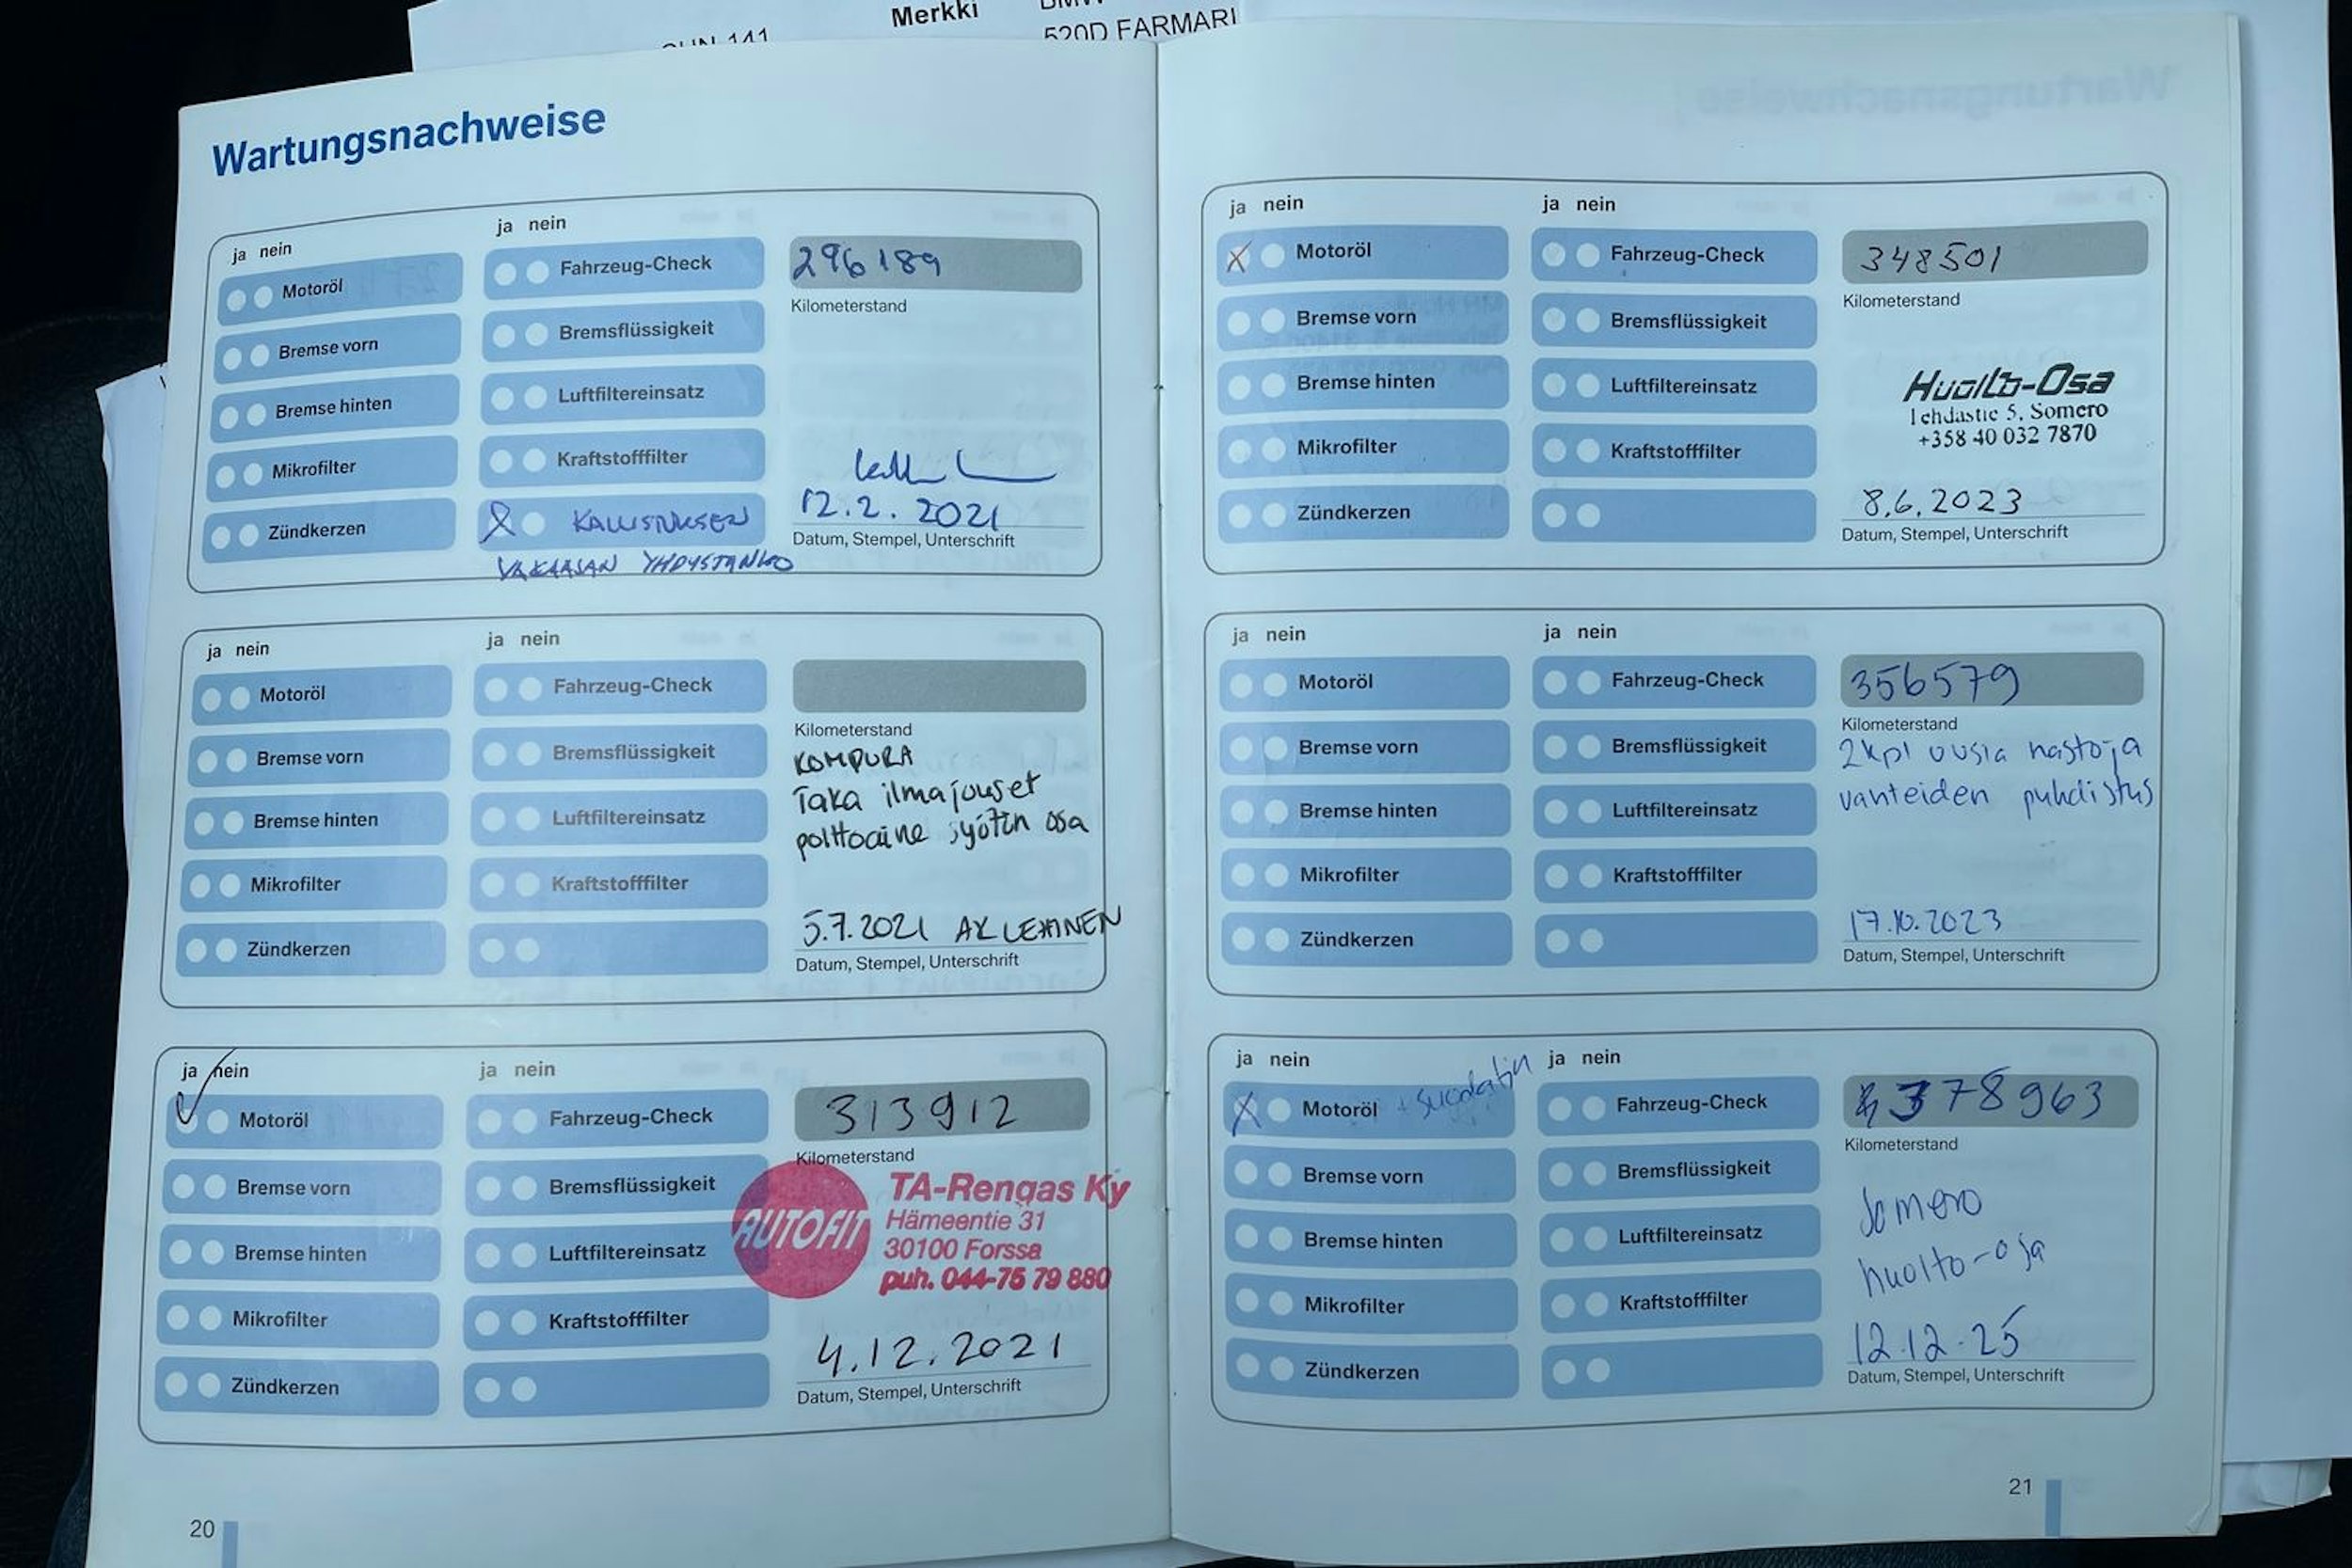 Merkki
520D FARMARI
Wartungsnachweise
ja nein
ja nein
Motoröl
Fahrzeug-Check
296189
Kilometerstand
Bremse vorn
Bremsflüssigkeit
Bremse hinten
Luftfiltereinsatz
Mikrofilter
Kraftstofffilter
Zündkerzen
KALLISTUKSEN
VAKAAJAN YHDYSTANKO
12.2.2021
Datum, Stempel, Unterschrift
ja nein
ja nein
Motoröl
Fahrzeug-Check
Kilometerstand
Bremse vorn
Bremsflüssigkeit
KOMPURA
Taka ilmajouset
polttoaine syötin osa
Bremse hinten
Luftfiltereinsatz
Mikrofilter
Kraftstofffilter
Zündkerzen
5.7.2021 AK LEHTINEN
Datum, Stempel, Unterschrift
ja nein
ja nein
Motoröl
Fahrzeug-Check
313912
Kilometerstand
Bremse vorn
Bremsflüssigkeit
AUTOFIT
TA-Rengas Ky
Hämeentie 31
30100 Forssa
puh. 044-75 79 880
Bremse hinten
Luftfiltereinsatz
Mikrofilter
Kraftstofffilter
Zündkerzen
4.12.2021
Datum, Stempel, Unterschrift
20
ja nein
ja nein
Motoröl
Fahrzeug-Check
348501
Kilometerstand
Bremse vorn
Bremsflüssigkeit
Bremse hinten
Luftfiltereinsatz
Huolto-Osa
5, Somero
+358 40 032 7870
Mikrofilter
Kraftstofffilter
Zündkerzen
8.6.2023
Datum, Stempel, Unterschrift
ja nein
ja nein
Motoröl
Fahrzeug-Check
356579
Kilometerstand
2kpl uusia nastoja
vanteiden puhdistus
Bremse vorn
Bremsflüssigkeit
Bremse hinten
Luftfiltereinsatz
Mikrofilter
Kraftstofffilter
Zündkerzen
17.10.2023
Datum, Stempel, Unterschrift
ja nein
ja nein
Motoröl + suodatin
Fahrzeug-Check
378963
Kilometerstand
Bremse vorn
Bremsflüssigkeit
Somero
huolto-osa
Bremse hinten
Luftfiltereinsatz
Mikrofilter
Kraftstofffilter
Zündkerzen
12.12.25
Datum, Stempel, Unterschrift
21